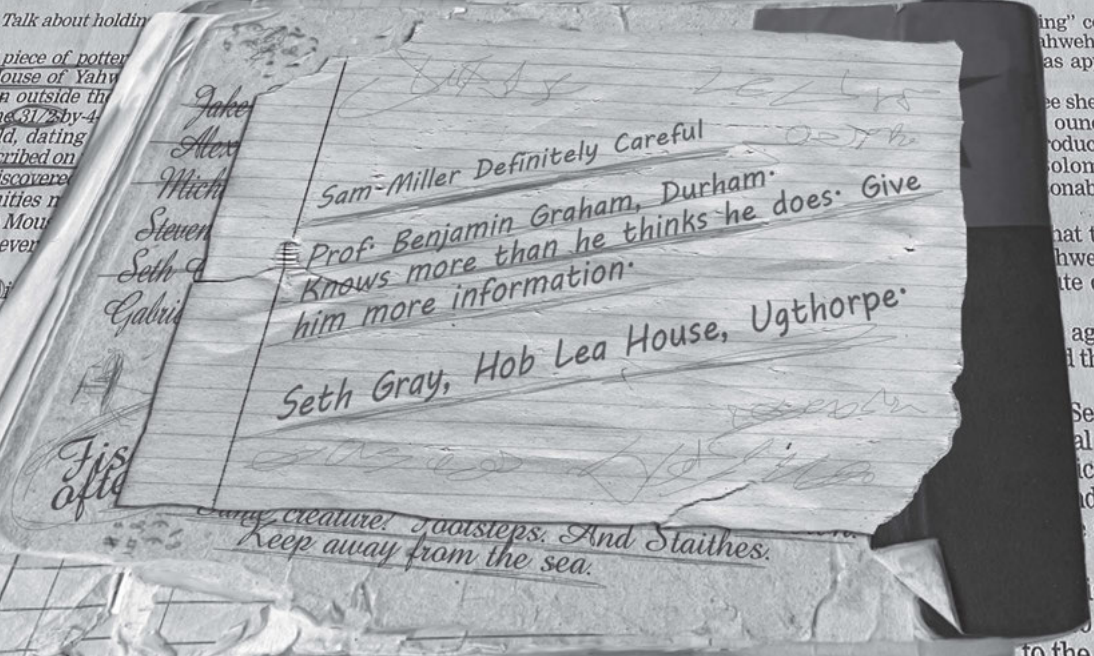 Talk about holdin
piece of potter
ouse of Yahw
n outside th
ne 31/2-by-4-
ld, dating
cribed on
iscovere
nities n
Mous
ever
Jake
Alex
Mich
Steven
Seth G
Gabrie
Sam-Miller Definitely Careful
Prof. Benjamin Graham, Durham.
Knows more than he thinks he does. Give
him more information.
Seth Gray, Hob Lea House, Ugthorpe.
Fis
afte
creature! Footsteps. And Staithes.
Keep away from the sea.
ing" c
ahweh
as ap
ee she
ounc
roduc
olom
onab
hat t
hwe
ite c
ag
d th
Se
al
ic
nd
to the